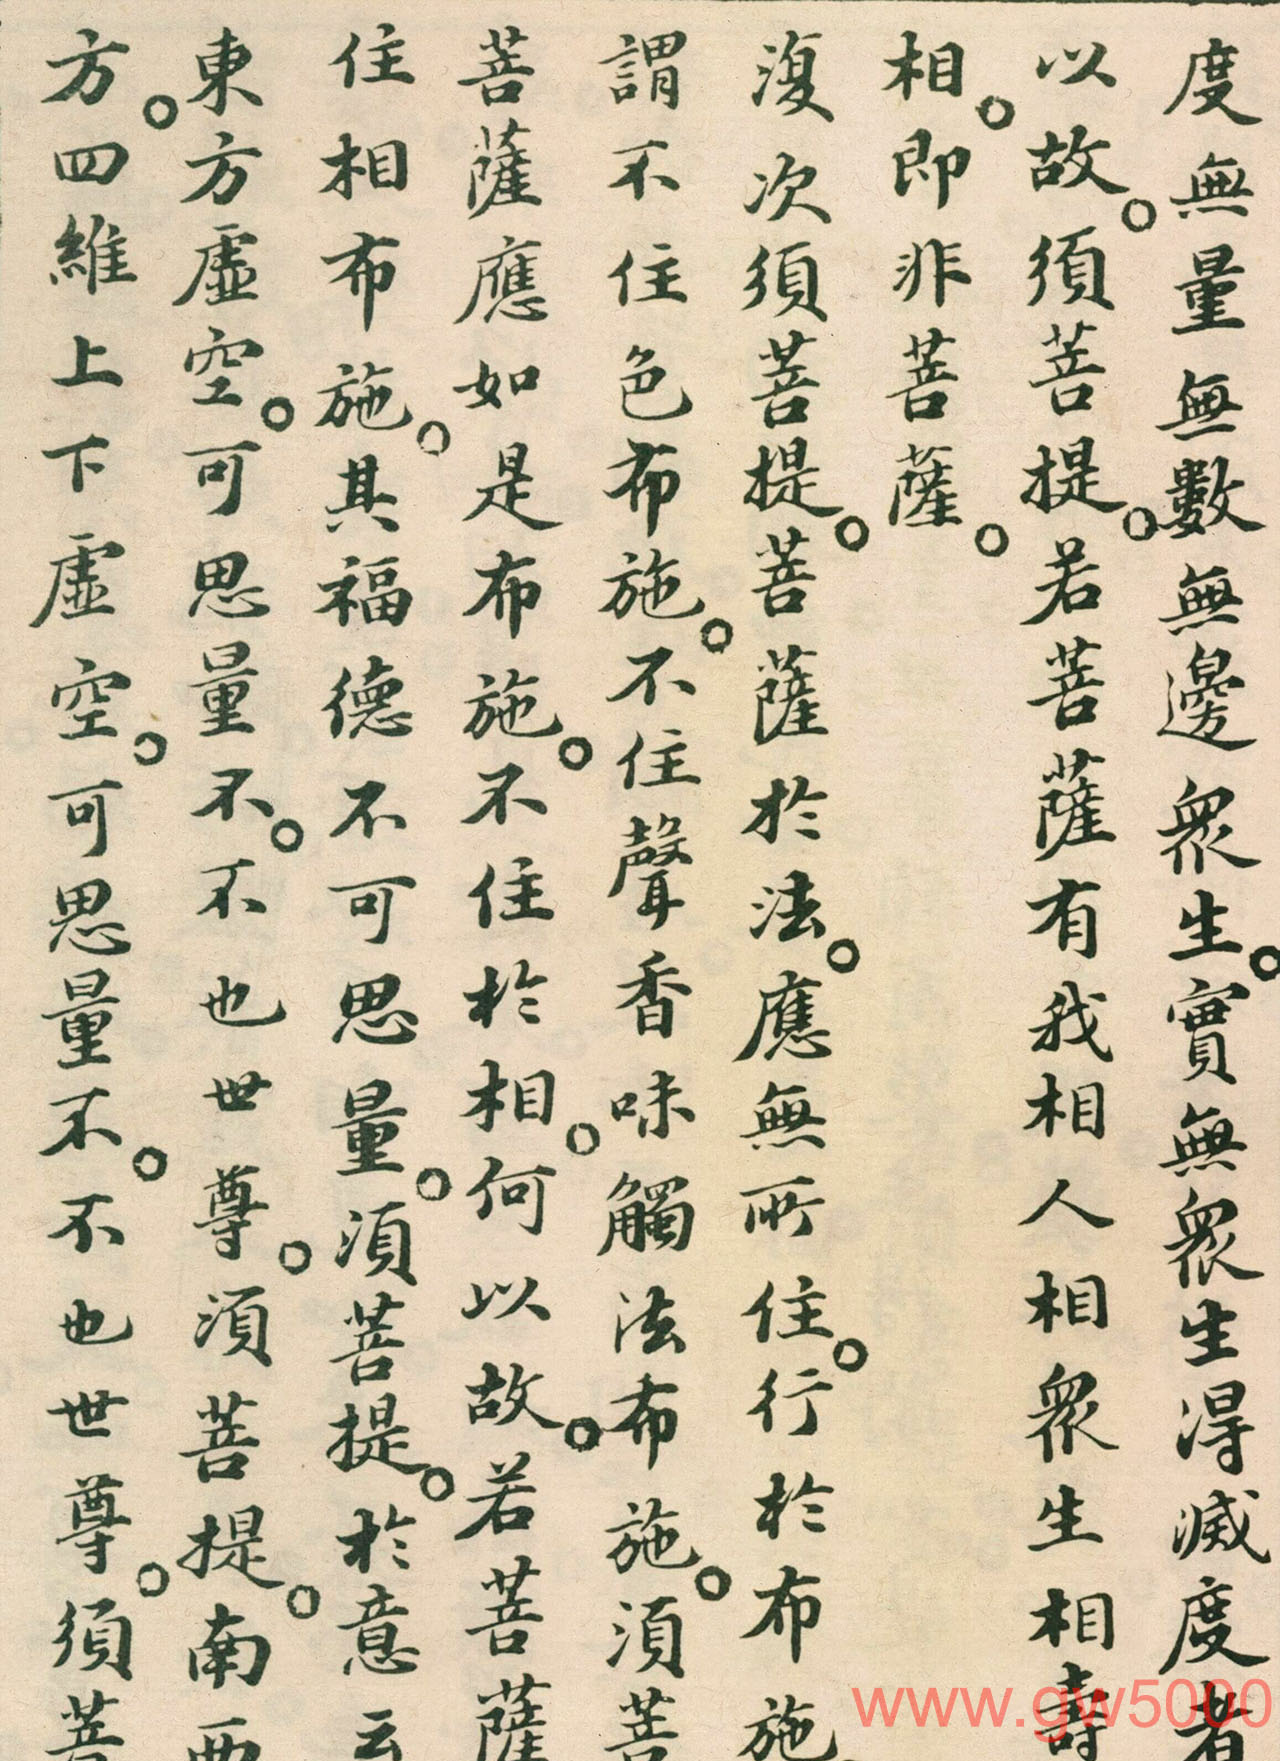 度無量無數無邊衆生。實無衆生得滅度者
以故。須菩提。若菩薩有我相人相衆生相壽
相。即非菩薩。
復次須菩提。菩薩於法。應無所住。行於布施
謂不住色布施。不住聲香味觸法布施。須菩
菩薩應如是布施。不住於相。何以故。若菩薩
住相布施。其福德不可思量。須菩提。於意云
東方虛空。可思量不。不也世尊。須菩提。南西
方。四維上下虛空。可思量不。不也世尊。須菩
www.gw5000